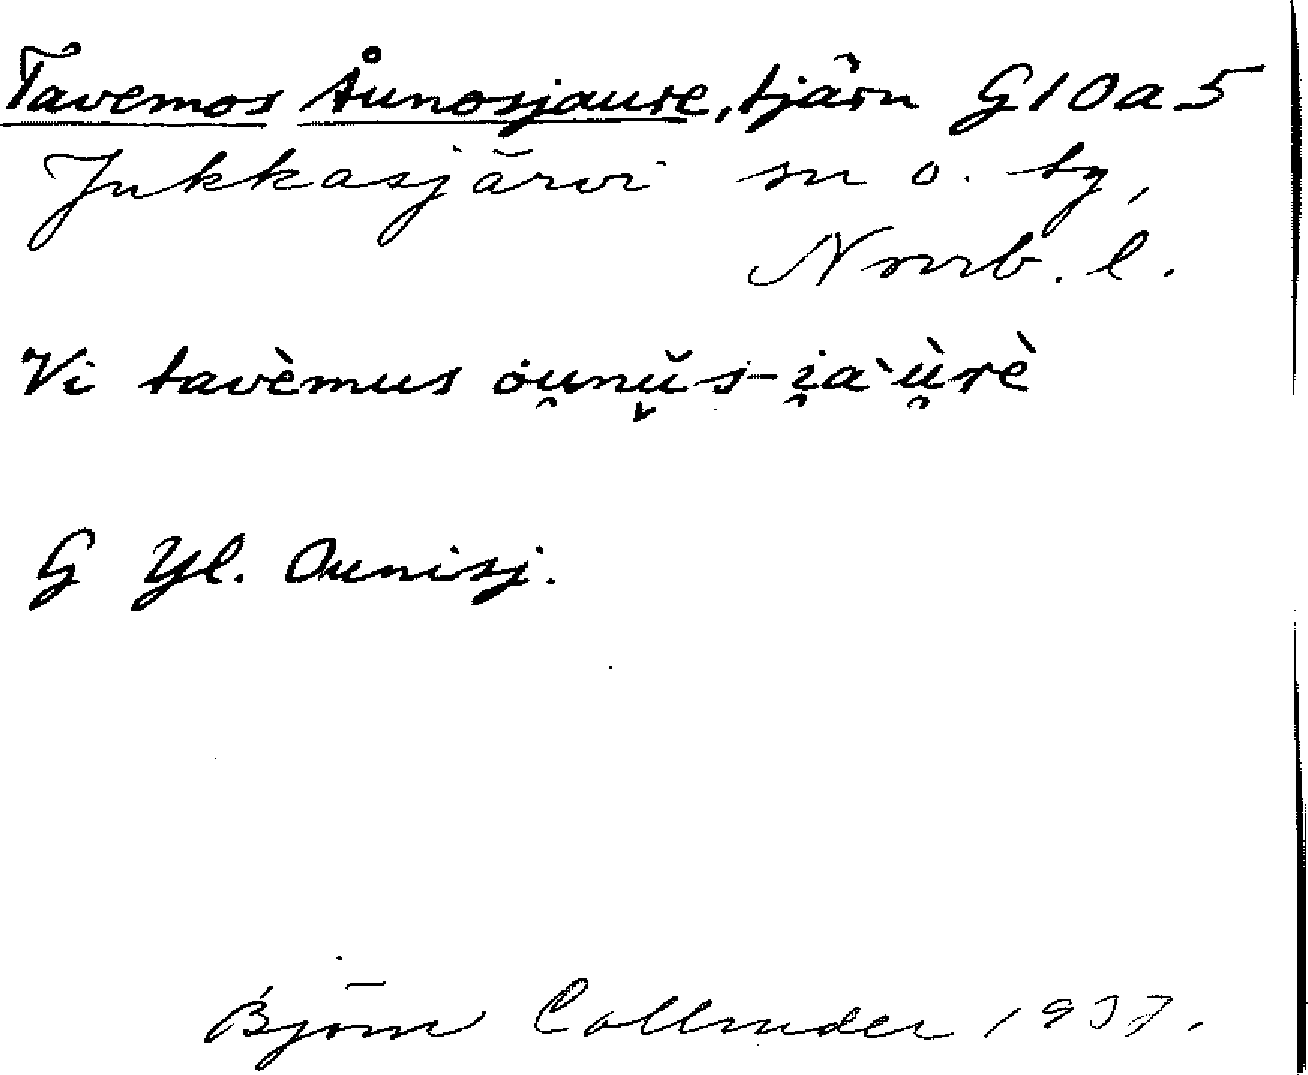 Tavemos Åunosjaure, tjärn G10a5
Jukkasjärvi sn o. tg,
Norrb. l.
Vi tavèmus ou̯nŭs-i̯a`ù̯rè
G Yl. Ounisj.
Björn Collinder 1937.